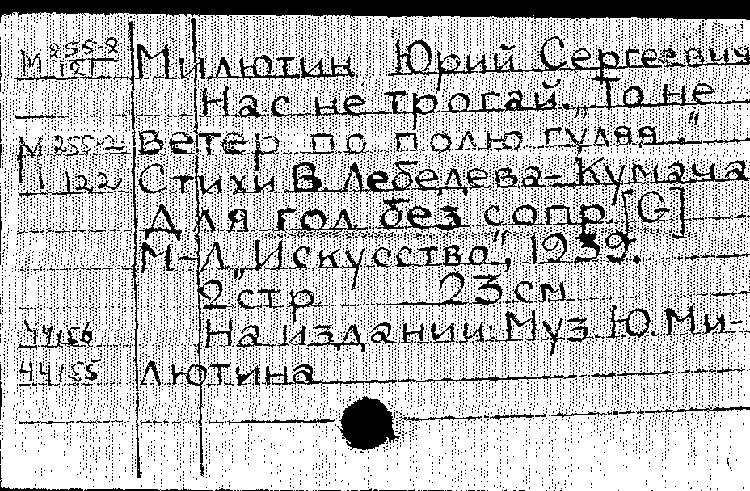 М 255-2 Милютин Юрий Сергеевич
121
Нас не трогай. „То не
М 255-2 ветер по полю гуляя."
122 Стихи В. Лебедева-Кумача
Для гол. без сопр. [G]
М-Л „Искусство", 1939.
2 стр 23 см
44156 На издании: Муз. Ю. Ми-
44155 лютина